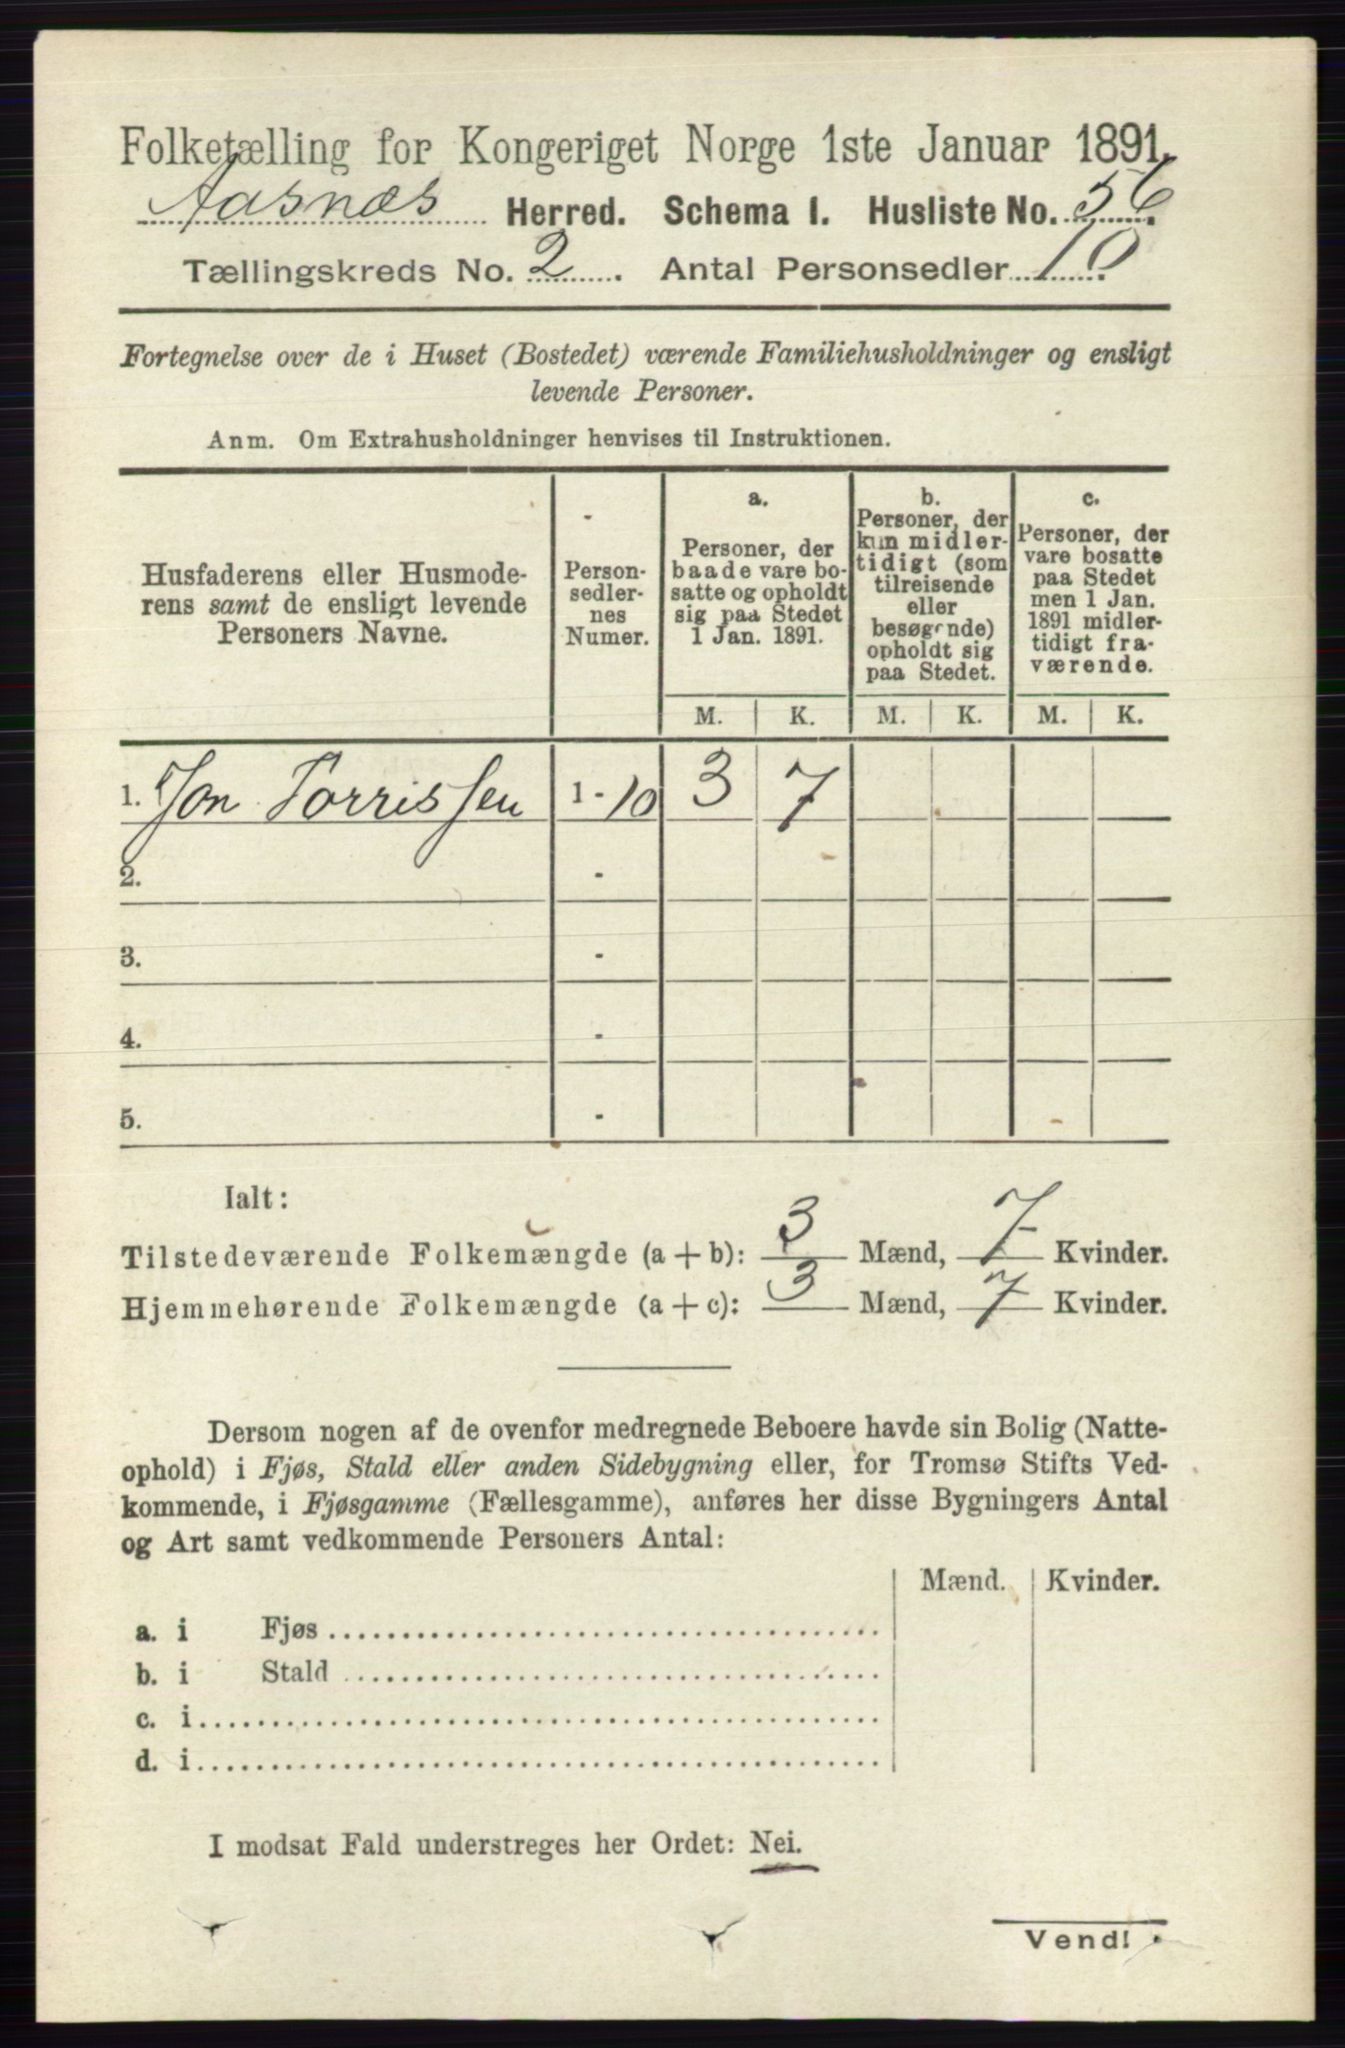 Folketælling for Kongeriget Norge 1ste Januar 1891.
Aasnæs Herred. Schema I. Husliste No. 56.
Tællingskreds No. 2. Antal Personsedler 10.
Fortegnelse over de i Huset (Bostedet) værende Familiehusholdninger og ensligt
levende Personer.
Anm. Om Extrahusholdninger henvises til Instruktionen.
Husfaderens eller Husmode-
rens samt de ensligt levende
Personers Navne.
Person-
sedler-
nes
Numer.
a.
Personer, der
baade vare bo-
satte og opholdt
sig paa Stedet
1 Jan. 1891.
b.
Personer, der
kun midler-
tidigt (som
tilreisende
eller
besøgende)
opholdt sig
paa Stedet.
c.
Personer, der
vare bosatte
paa Stedet
men 1 Jan.
1891 midler-
tidigt fra-
værende.
M. K. M. K. M. K.
1. Jon Torrissen 1-10 3 7
2. -
3. -
4. -
5. -
Ialt:
Tilstedeværende Folkemængde (a + b): 3 Mænd, 7 Kvinder.
Hjemmehørende Folkemængde (a + c): 3 Mænd, 7 Kvinder.
Dersom nogen af de ovenfor medregnede Beboere havde sin Bolig (Natte-
ophold) i Fjøs, Stald eller anden Sidebygning eller, for Tromsø Stifts Ved-
kommende, i Fjøsgamme (Fællesgamme), anføres her disse Bygningers Antal
og Art samt vedkommende Personers Antal:
Mænd. Kvinder.
a. i Fjøs
b. i Stald
c. i
d. i
I modsat Fald understreges her Ordet: Nei.
Vend!